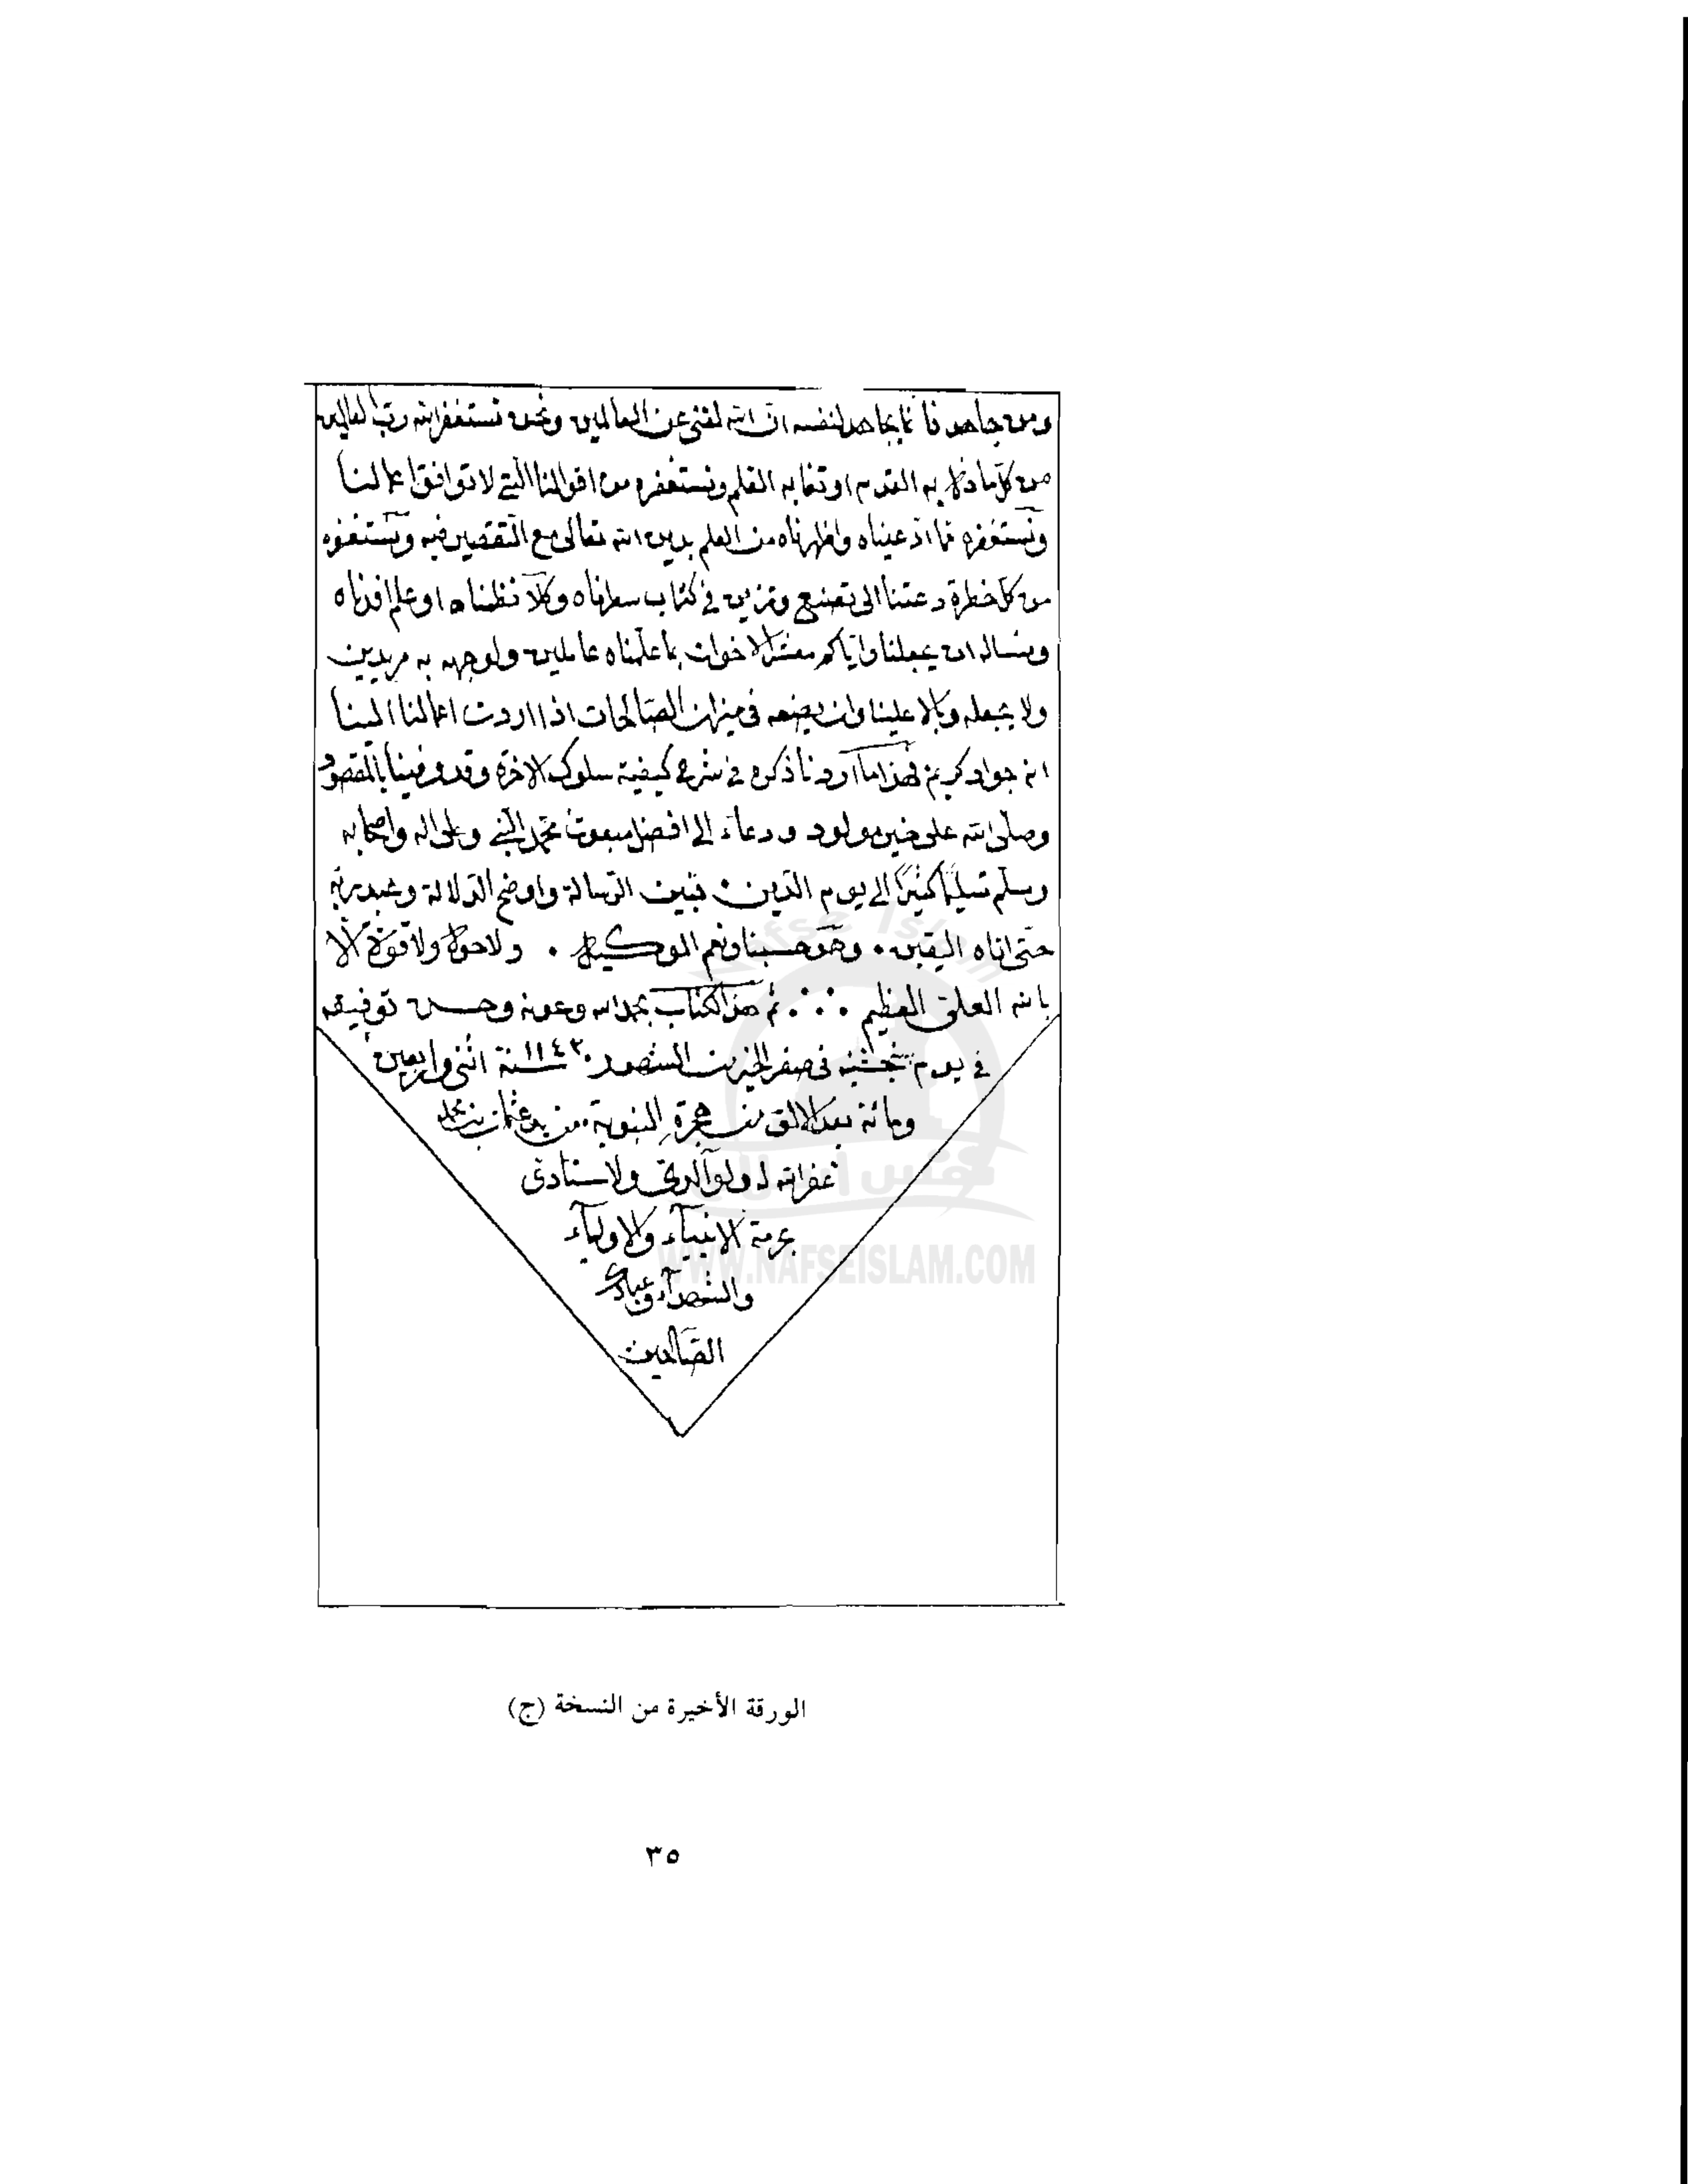 ومن جاهد فانما يجاهد لنفسه ان الله لغني عن العالمين ونحن نستغفر الله رب العالمين
من كل ما ذل به القدم او تغابه القلم ونستغفره من اقوالنا التي لا توافق اعمالنا
ونستغفره مما ادعيناه واظهرناه من العلم بدين الله تعالى مع التقصير فيه ونستغفره
من كل خطرة دعتنا الى تصنع وتزين في كتاب سطرناه وكلام نظمناه او علم افدناه
ونساله ان يجعلنا واياكم معشر الاخوان بما علمناه عاملين ولوجهه به مريدين
ولا يجعله وبالا علينا وان يضعه في ميزان الصالحات اذا اردت اعمالنا الينا
انه جواد كريم فهذا ما اردنا ذكره في شرح كيفية سلوك الاخرة وقد وفينا بالمقصود
وصلى الله على خير مولود ودعاء الى افضل مبعوث محمد النبي وعلى اله واصحابه
وسلم تسليما كثيرا الى يوم الدين . تبين الرسالة واوضح الدلالة وعبد ربه
حتى اتاه اليقين . وهو حسبنا ونعم الوكيل . ولا حول ولا قوة الا
بالله العلي العظيم .∴. تم هذا الكتاب بحمد الله وعونه وحسن توفيقه
في يوم پنجشنبه في صفر الخير من الشهور ١١٤٢ سنة اثنى واربعين
ومائة بعد الالف من هجرة النبوية من يد عثمان بن محمد
غفر الله له ولوالدي ولاستادي
بحرمة الانبياء والاولياء
والشهداء وعبادك
الصالحين
الورقة الأخيرة من النسخة (ج)
٣٥
Nafse Islam
نفس اسلام
WWW.NAFSEISLAM.COM